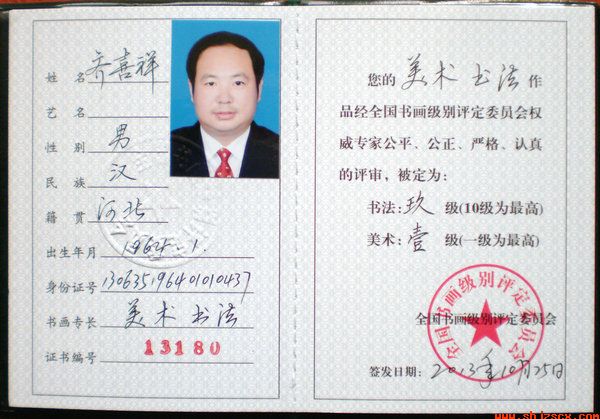 姓 名 齐喜祥
艺 名
性 别 男
民 族 汉
籍 贯 河北
出生年月 1964.1.
身份证号 130635196401010437
书画专长 美术 书法
证书编号 13180
您的 美术 书法 作
品经全国书画级别评定委员会权
威专家公平、公正、严格、认真
的评审，被定为：
书法：玖 级(10级为最高)
美术：壹 级(一级为最高)
全国书画级别评定委员会
全国书画级别评定委员会
签发日期：2013年10月25日
www.shjzscx.com